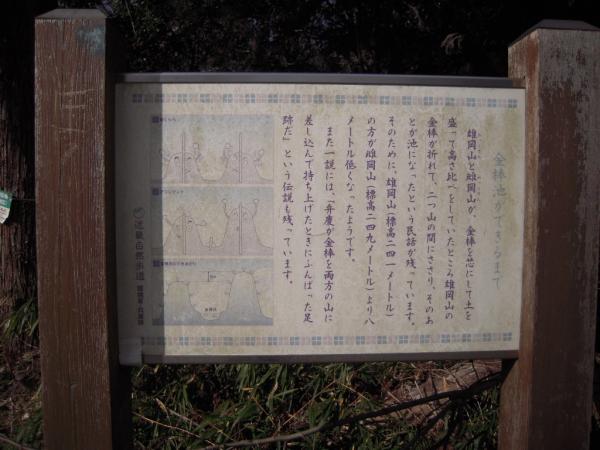 金棒池ができるまで
雄岡山と雌岡山が、金棒を芯にして土を
盛って高さ比べをしていたところ雄岡山の
金棒が折れて、二つ山の間にささり、そのあ
とが池になったという民話が残っています。
そのために、雄岡山(標高二四一メートル)
の方が雌岡山(標高二四九メートル)より八
メートル低くなったようです。
また一説には、「弁慶が金棒を両方の山に
差し込んで持ち上げたときにふんばった足
跡だ」という伝説も残っています。
近畿自然歩道
環境省・兵庫県